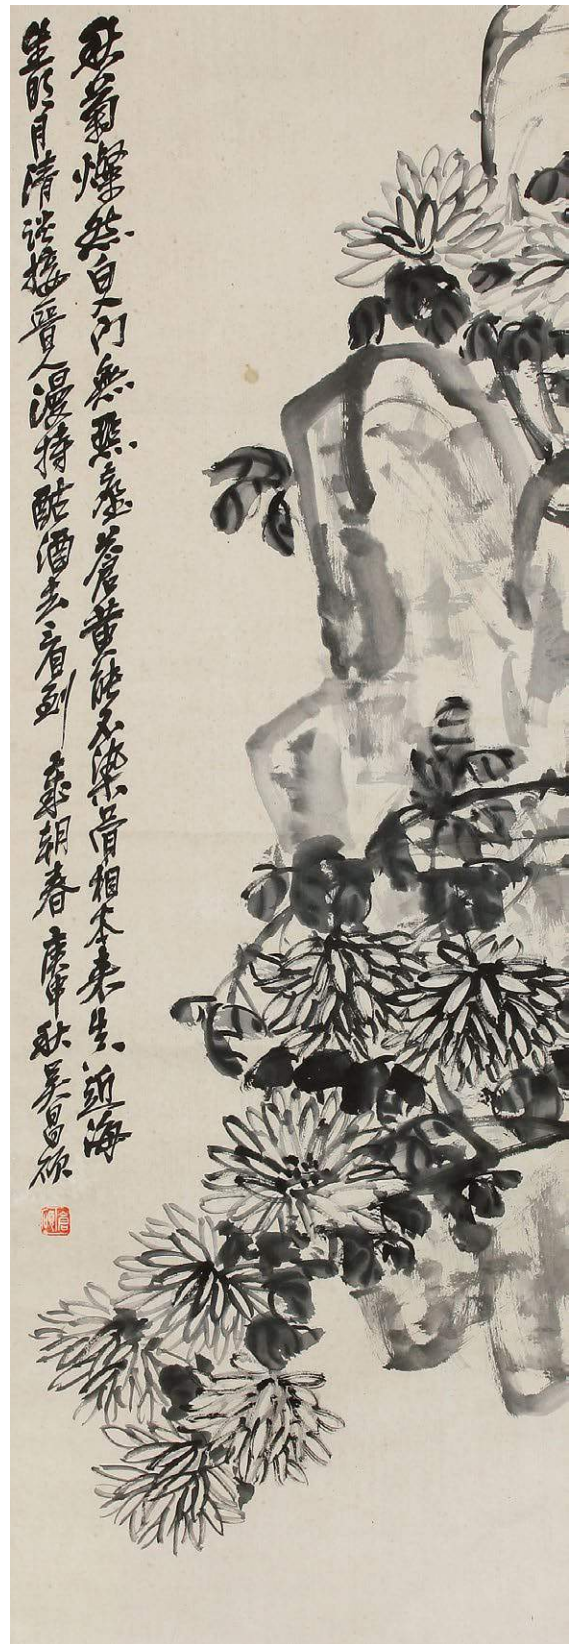 秋菊燦然白入門無點塵蒼黃能不染骨相本來真近海
生明月清談接晉人漫持酤酒去看到歲朝春庚申秋吴昌碩
倉碩